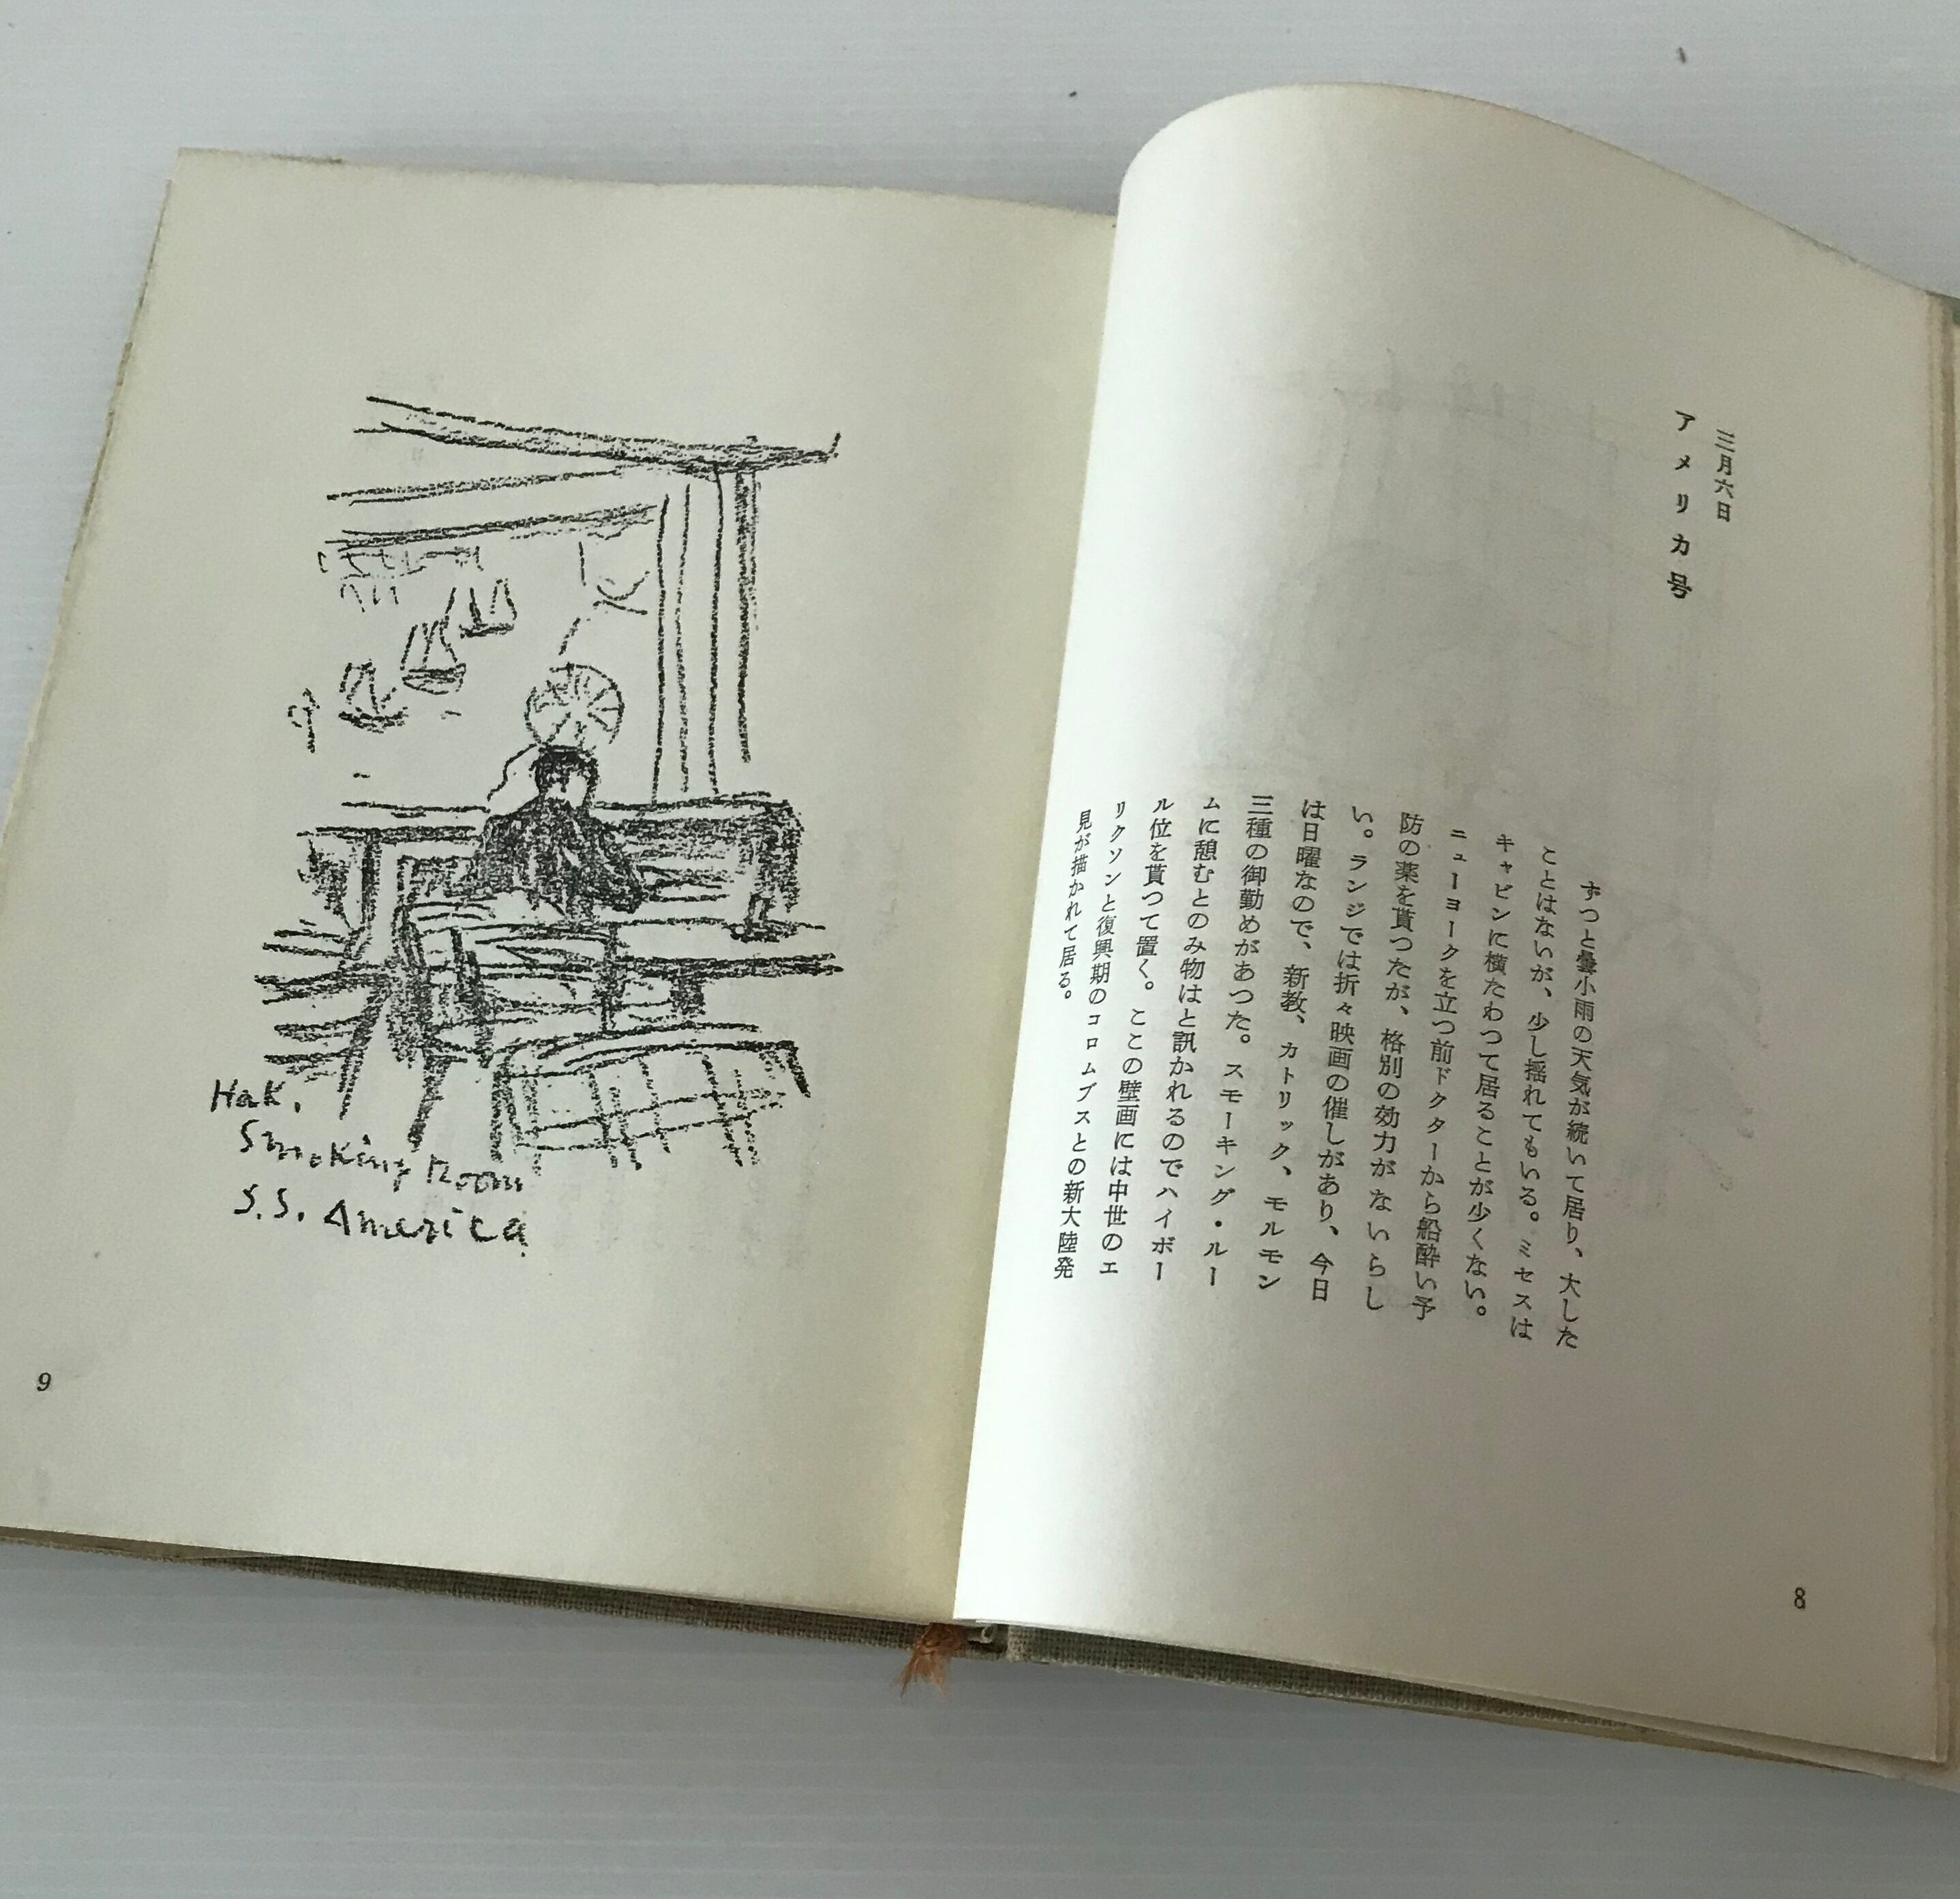 三月六日
アメリカ号
ずつと曇小雨の天気が続いて居り、大した
ことはないが、少し揺れてもいる。ミセスは
キャビンに横たわつて居ることが少くない。
ニューヨークを立つ前ドクターから船酔い予
防の薬を貰つたが、格別の効力がないらし
い。ランジでは折々映画の催しがあり、今日
は日曜なので、新教、カトリック、モルモン
三種の御勤めがあつた。スモーキング・ルー
ムに憩むとのみ物はと訊かれるのでハイボー
ル位を貰つて置く。ここの壁画には中世のエ
リクソンと復興期のコロムブスとの新大陸発
見が描かれて居る。
8
Hak.
Smoking Room
S.S. America
9